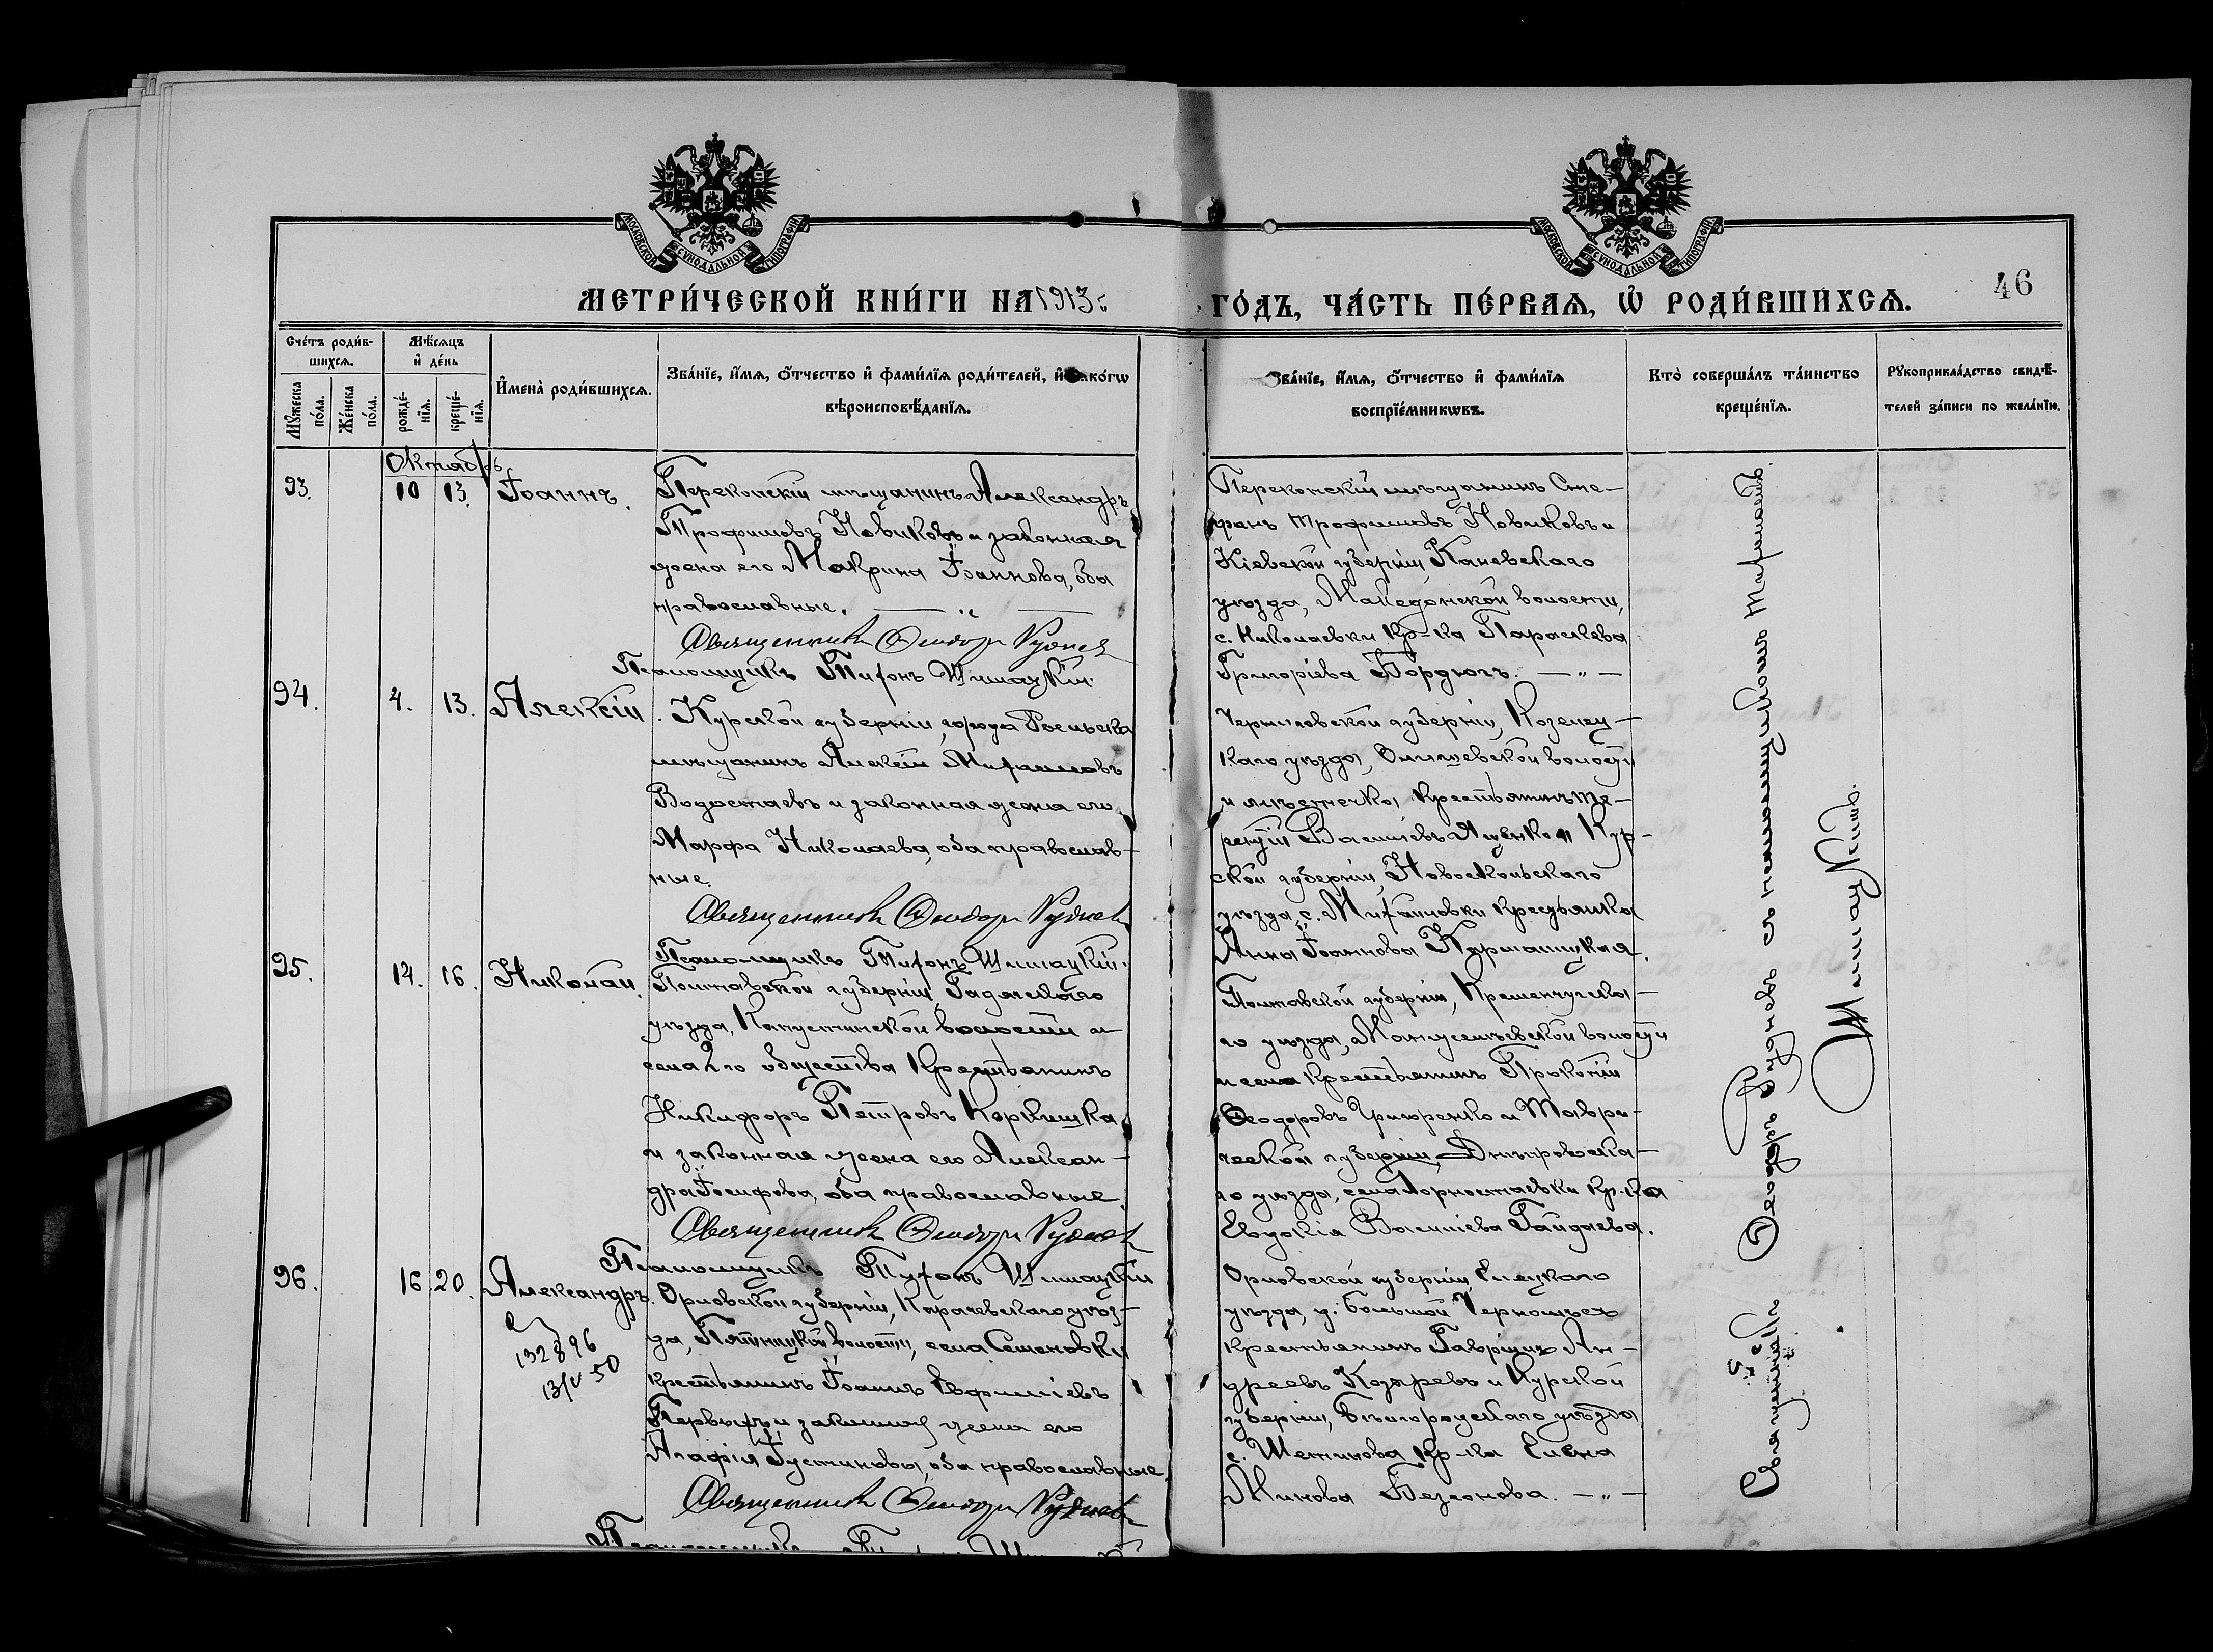 МОСКОВСКОЙ СУНОДАЛЬНОЙ ТИПОГРАФІИ
МОСКОВСКОЙ СУНОДАЛЬНОЙ ТИПОГРАФІИ
МЕТРИ́ЧЕСКОЙ КНИ́ГИ НА 1913 г.
ГО́ДЪ, ЧА́СТЬ ПЕ́РВАѦ, Ѡ҆ РОДИ́ВШИХСѦ.
46
Сче́тъ роди́в-
шихсѧ.
Мꙋ́жеска
по́ла.
Же́нска
по́ла.
Мѣ́сѧцъ
и҆ де́нь
рожде́-
нїѧ.
креще́-
нїѧ.
И҆мена̀ роди́вшихсѧ.
Зва́нїе, и҆́мѧ, ѻ҆́тчество и҆ фами́лїѧ роди́телей, и҆ како́гѡ
вѣроисповѣ́данїѧ.
Зва́нїе, и҆́мѧ, ѻ҆́тчество и҆ фами́лїѧ
воспрїе́мникѡвъ.
Кто̀ соверша́лъ та́инство
креще́нїѧ.
Рꙋкоприкла́дство свидѣ́-
телей за́писи по жела́нїю.
Октябрь
93. 10 13. Іоаннъ.
Перекопскій мѣщанинъ Александръ
Трофимовъ Новиковъ и законная
жена его Макрина Іоаннова, оба
православные. — " —
Священникъ Ѳеодоръ Руднев
Псаломщикъ Тихонъ Шишацкій.
Перекопскій мѣщанинъ Сте-
фанъ Трофимовъ Новиковъ и
Кіевской губерніи, Каневскаго
уѣзда, Македонской волости,
с. Николаевки кр-ка Параскева
Григоріева Бордюгъ. — " —
94. 4. 13. Алексій.
Курской губерніи, города Рыльска
мѣщанинъ Алексій Михаиловъ
Водостаевъ и законная жена его
Марфа Николаева, оба православ-
ные.
Священникъ Ѳеодоръ Руднев
Псаломщикъ Тихонъ Шишацкій.
Черниговской губерніи, Козелец-
каго уѣзда, волости
и мѣстечка, крестьянинъ Те-
рентій Васильевъ Яценко и Кур-
ской губерніи, Новооскольскаго
уѣзда, с. Михайловки крестьянка
Анна Іоаннова
95. 14. 16. Николай.
Полтавской губерніи Гадячскаго
уѣзда, Капустинской волости и
села 2го общества крестьянинъ
Никифоръ Петровъ
и законная жена его Алексан-
дра Іосифова, оба православные.
Священникъ Ѳеодоръ Руднев
Псаломщикъ Тихонъ Шишацкій
Полтавской губерніи, Кременчугска-
го уѣзда, волости
и села крестьянинъ Прокопій
Ѳеодоровъ Григоренко и Таври-
ческой губерніи, Днѣпровска-
го уѣзда, села Горностаевки кр-ка
Евдокія Васильева Гайдаева.
96. 16. 20. Александръ.
132896
13/V 50
Орловской губерніи, Карачевскаго уѣз-
да, волости, села Семеновки
крестьянинъ Іоаннъ Евфиміевъ
Первыхъ и законная жена его
Агафія Іустинова, оба православные.
Священникъ Ѳеодоръ Руднев
Псаломщикъ
Орловской губерніи, Елецкаго
уѣзда, д. Большой
крестьянинъ Гавріилъ Ан-
дреевъ Козыревъ и Курской
губерніи, Бѣлгородскаго уѣзда
с. Щетинова кр-ка Елена
Минова Безсонова. — " —
Священникъ Ѳеодоръ Рудневъ съ псаломщикомъ Тихономъ
Шишацкимъ.